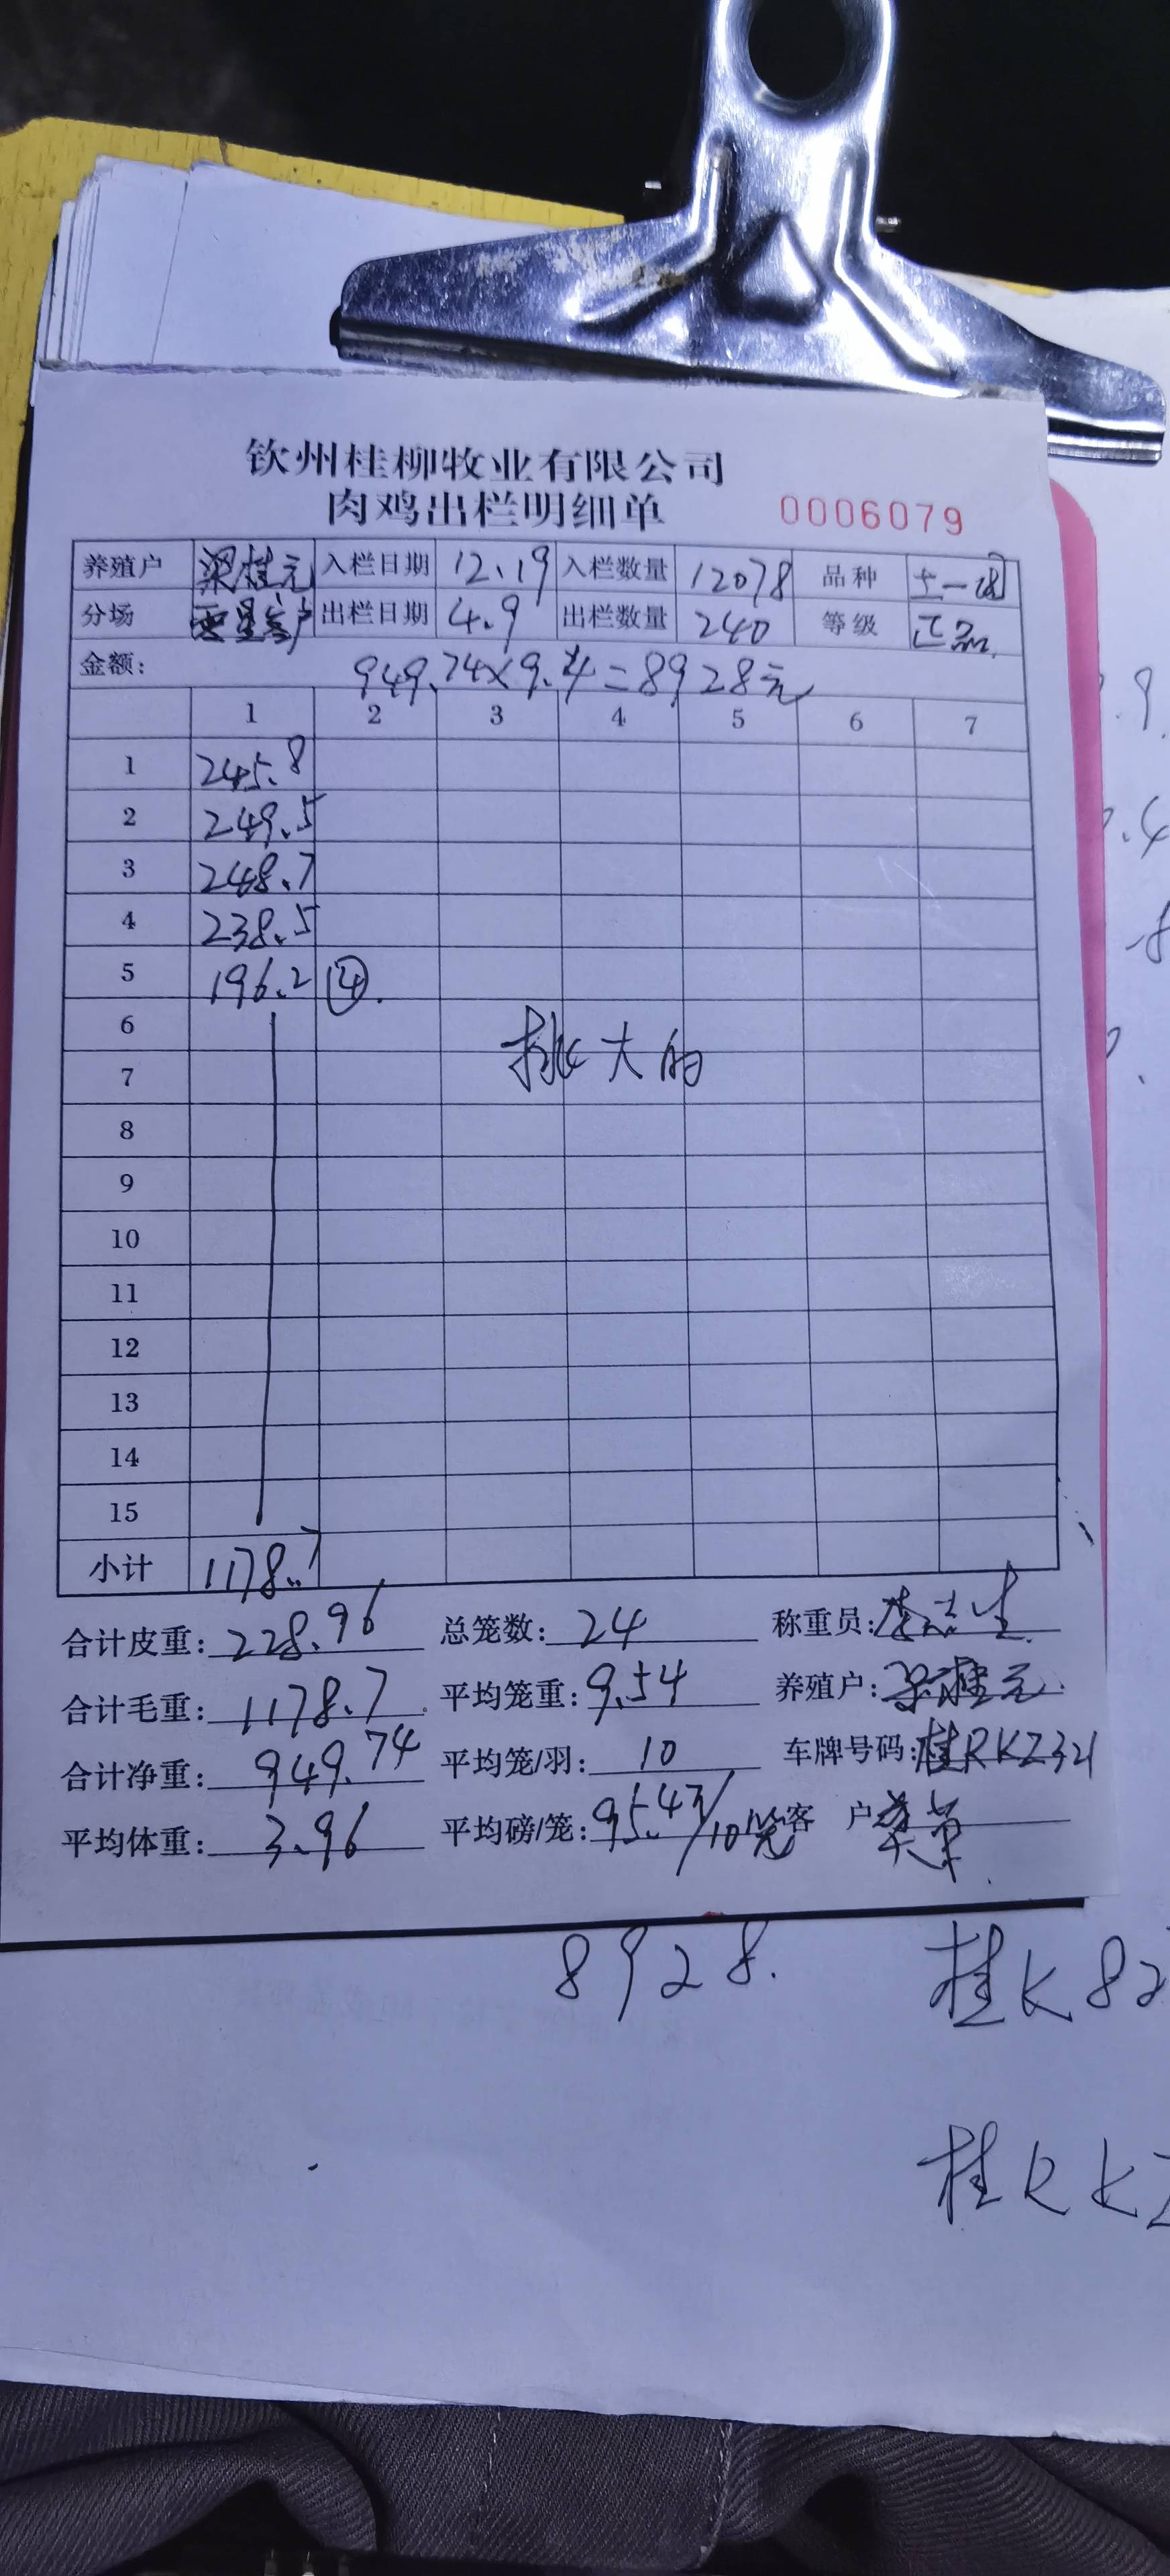 钦州桂柳牧业有限公司
肉鸡出栏明细单 0006079
养殖户 梁桂元 入栏日期 12.19 入栏数量 12078 品种 土一
分场 出栏日期 4.9 出栏数量 240 等级 正品
金额: 949.74×9.4=8928元
1 2 3 4 5 6 7
1 245.8
2 249.5
3 248.7
4 238.5
5 196.2 ④
6
挑大的
7
8
9
10
11
12
13
14
15
小计 1178.7
合计皮重: 228.96 总笼数: 24 称重员:
合计毛重: 1178.7 平均笼重: 9.54 养殖户: 梁桂元
合计净重: 949.74 平均笼/羽: 10 车牌号码: 桂RKZ321
平均体重: 3.96 平均磅/笼: 95.47/10笼 客 户
8928. 桂K82
桂RKZ